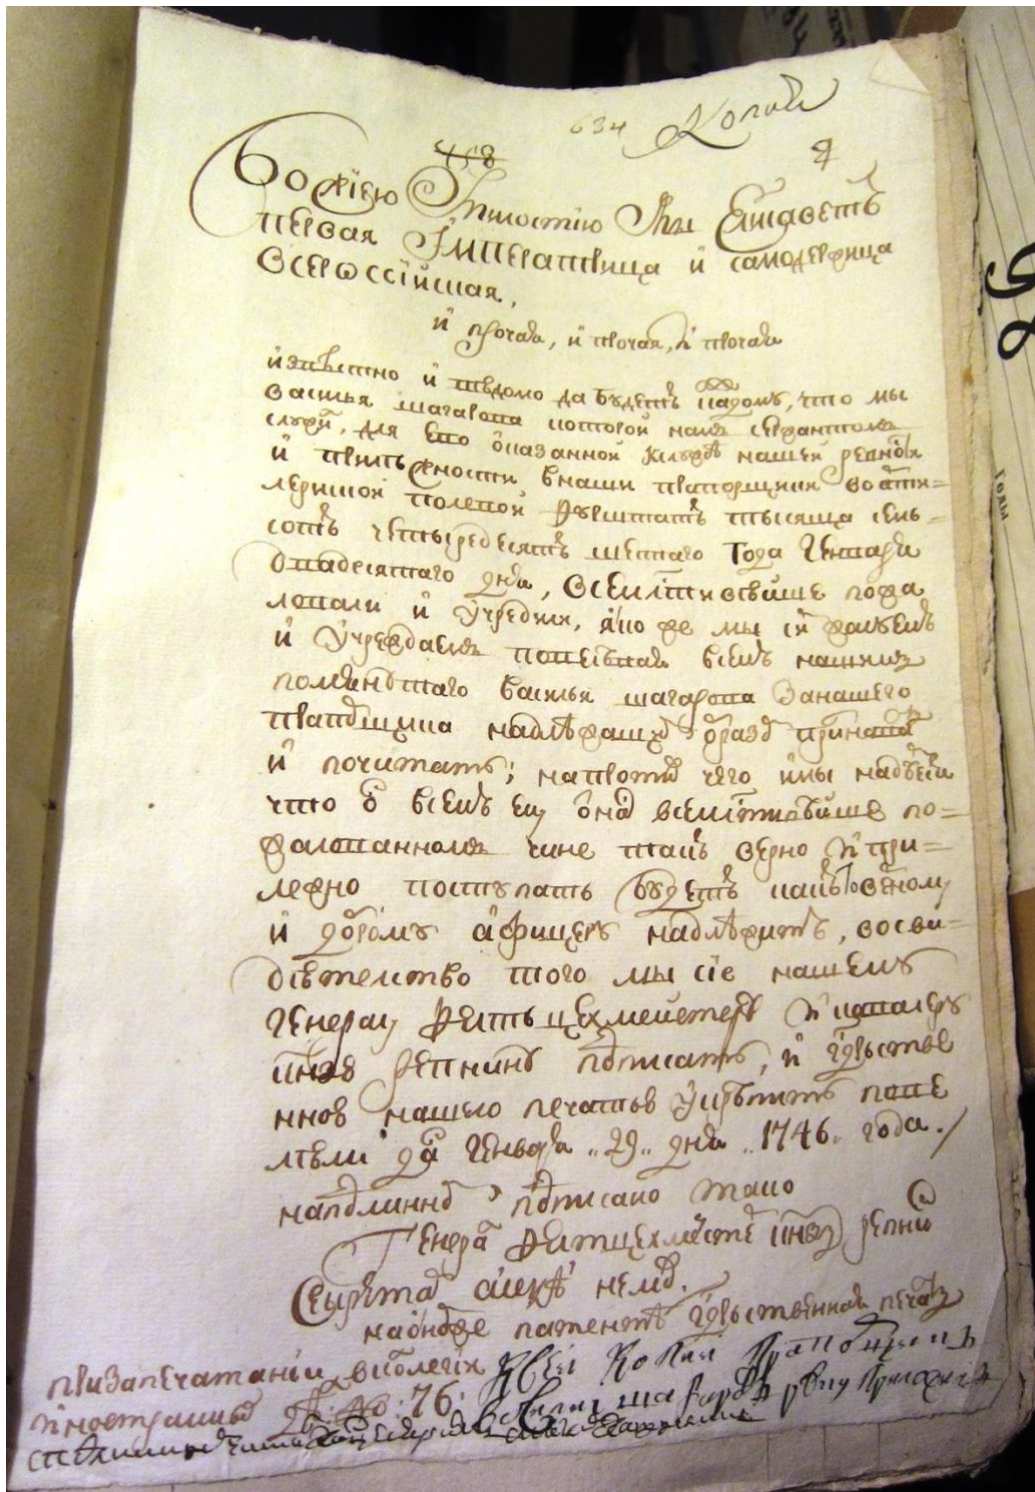 634 Копия
458
Божiею Милостiю Мы Елисаветъ
первая Императрица и самодержица
Всеросiйская,
и прочая, и прочая, и прочая
извѣстно и вѣдомо да будетъ каждому, что мы
василья шагарова которой намъ сержантомъ
служи, для его оказанной къ службѣ нашей ревности
и прилѣжности внаши прапорщики во арти=
лериской полевой полкъ тысяща семь=
сотъ четыредесятъ шестаго года генваря
дня, всемилостивѣйше пожа
ловали и учредили, яко же мы симъ жалуемъ
и учреждаемъ повелѣвая всемъ нашимъ
помянутаго василья шагарова занашего
прапорщика надлѣжащимъ образомъ признавать
и почитать; напротивъ чего и мы надѣемся
что онъ всемъ ему от насъ всемилостивѣйше по=
жалованномъ чине такъ верно и при=
лежно поступать будетъ какъ то верному
и доброму афицеру надлѣжитъ, восви=
дѣтелство того мы сiе нашему
генералу фелтьцехмейстеру и кавалеру
князю репнину подписать, и государстве
нною нашею печатью укрѣпить пове
лѣли дан генваря „29„ дня „1746„ года./
наподлинномъ подписано тако
Генералъ фелтцехмейстеръ князь репнинъ
Секретарь
наономже патентѣ государственная печать
призапечатанiи вколегiи
иностранныхъ делъ №: 76.
Ксей Копии Прапорщикъ
василей шагаровъ руку Приложилъ
сподлиннымъ читалъ